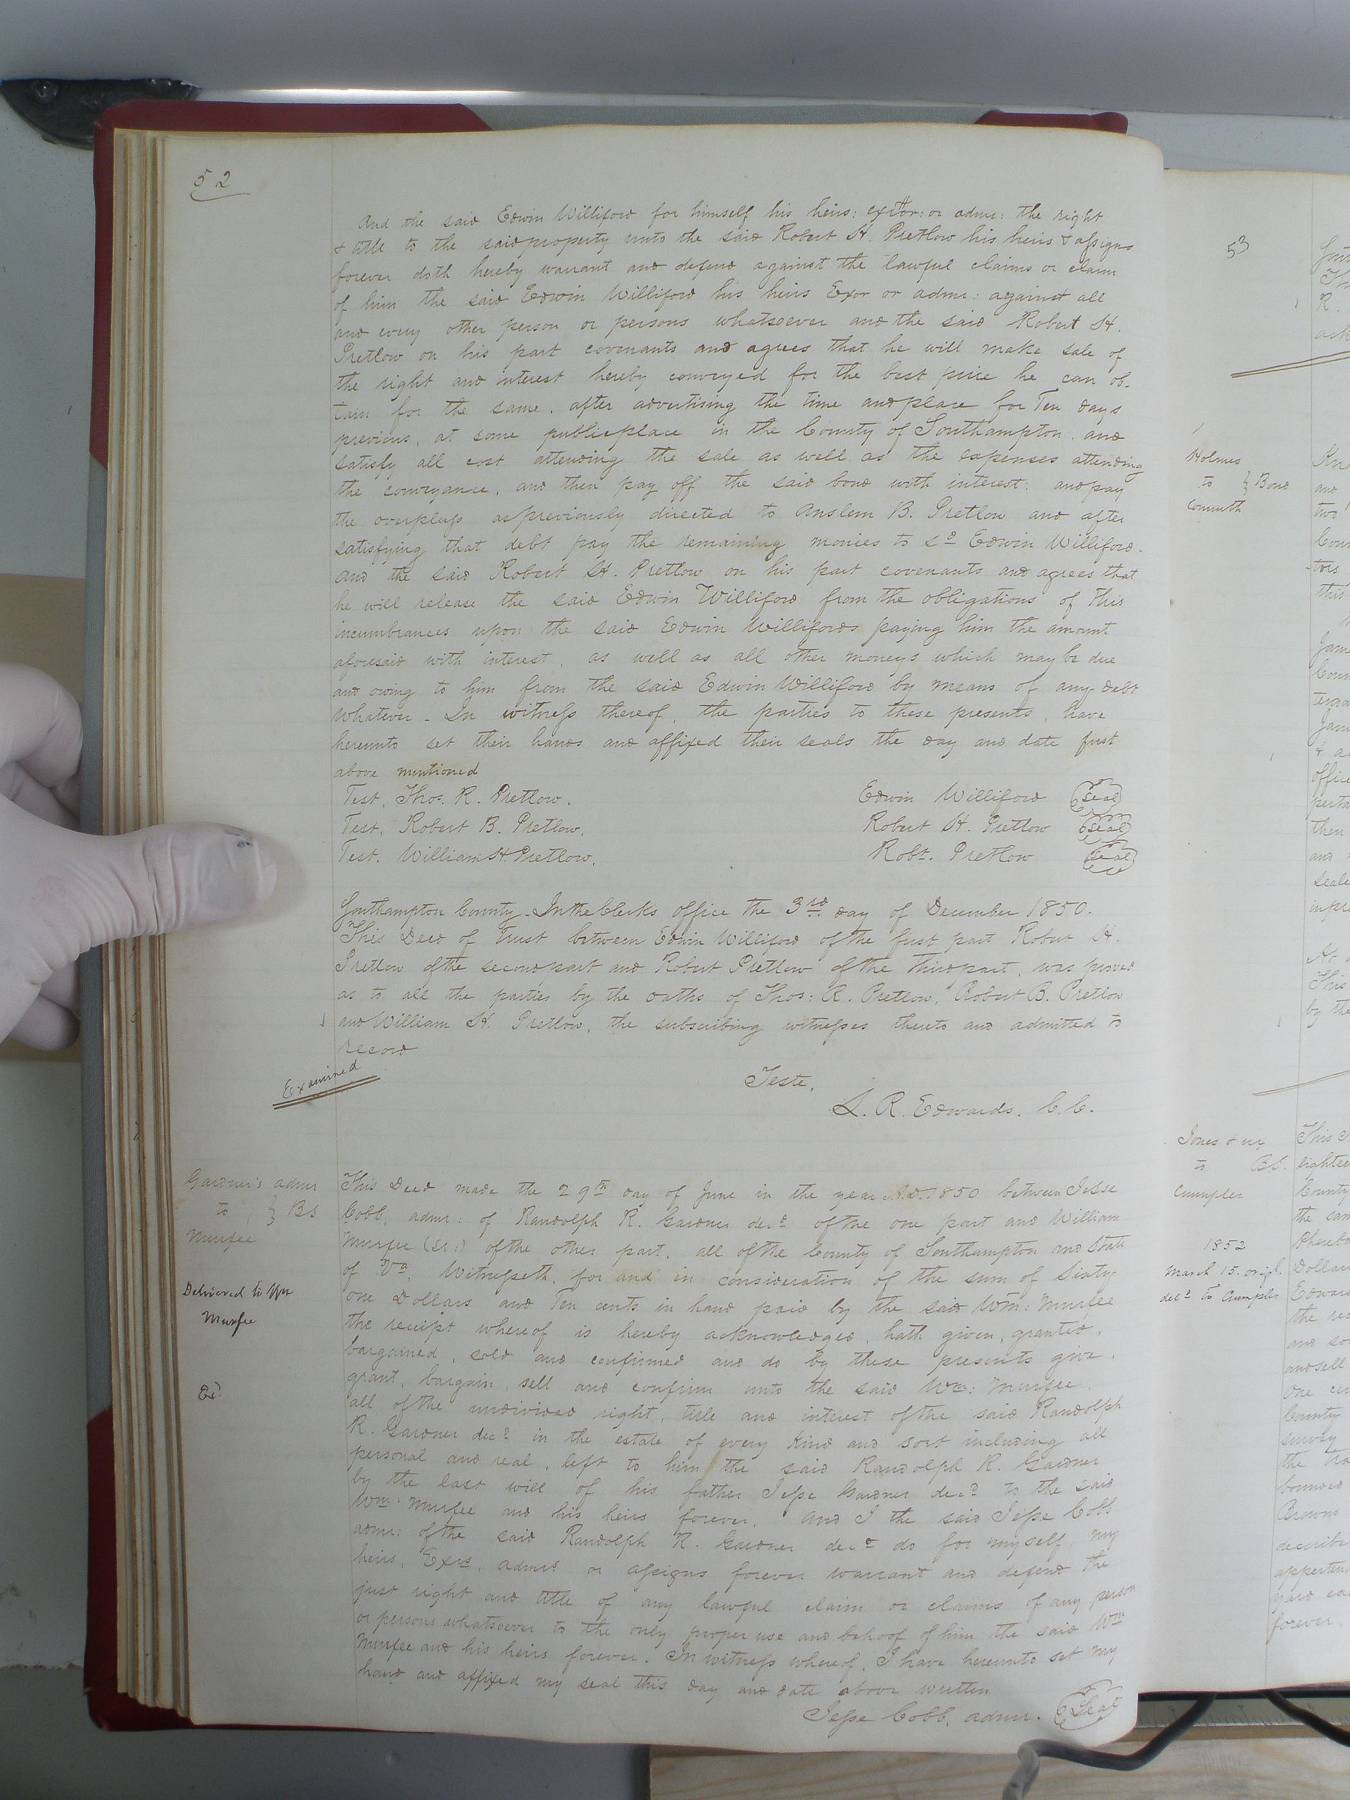 52
And the said Edwin Williford for himself his heirs: exttor: or adms: the right
& title to the said property unto the said Robert H. Pretlow his heirs & assigns
forever doth hereby warrant and defend against the lawful claims or claim
of him the said Edwin Williford his heirs Exor or adms: against all
and every other person or persons whatsoever and the said Robert H.
Pretlow on his part covenants and agrees that he will make sale of
the right and interest hereby conveyed for the best price he can ob-
tain for the same, after advertising the time and place for Ten days
previous, at some public place in the County of Southampton, and
satisfy all cost attending the sale as well as the expenses attending
the conveyance, and then pay off the said bond with interest: and pay
the overplus as previously directed to Anslem B. Pretlow and after
satisfying that debt pay the remaining monies to sd Edwin Williford.
And the said Robert H. Pretlow on his part covenants and agrees that
he will release the said Edwin Williford from the obligations of this
incumbrances upon the said Edwin Willifords paying him the amount
aforesaid with interest, as well as all other moneys which may be due
and owing to him from the said Edwin Williford by means of any debt
whatever - In witness thereof, the parties to these presents, have
hereunto set their hands and affixed their seals the day and date first
above mentioned
Test, Thos. R. Pretlow. Edwin Williford Seal
Test, Robert B. Pretlow. Robert H. Pretlow Seal
Test. William H Pretlow. Robt. Pretlow Seal
Southampton County. In the Clerks office the 3rd day of December 1850.
This Deed of trust between Edwin Williford of the first part Robert H.
Pretlow of the second part and Robert Pretlow of the third part, was proved
as to all the parties by the oaths of Thos: R. Pretlow, Robert B. Pretlow
and William H. Pretlow, the subscribing witnesses thereto and admitted to
record
Examined
Teste,
L. R. Edwards. C. C.
Gardner's admr
to } BS
Murfee
Delivered to Wm
Murfee
Ex!
This Deed made the 29th day of June in the year A.D. 1850 between Jesse
Cobb, admr: of Randolph R. Gardner decd of the one part and William
Murfee (Sr:) of the other part, all of the County of Southampton and State
of Va. Witnesseth, for and in consideration of the sum of Sixty
one Dollars and Ten cents in hand paid by the said Wm: Murfee
the receipt whereof is hereby acknowledged, hath given, granted,
bargained, sold and confirmed and do by these presents give,
grant, bargain, sell and confirm unto the said Wm: Murfee,
all of the undivided right, title and interest of the said Randolph
R. Gardner decd in the estate of every kind and sort including all
personal and real, left to him the said Randolph R. Gardner
by the last will of his father Jesse Gardner decd to the said
Wm: Murfee and his heirs forever. And I the said Jesse Cobb
admr: of the said Randolph R. Gardner decd do for myself, my
heirs, Exrs, admrs or assigns forever warrant and defend the
just right and title of any lawful claim or claims of any person
or persons whatsoever to the only proper use and behoof of him the said Wm
Murfee and his heirs forever. In witness whereof, I have hereunto set my
hand and affixed my seal this day and date above written
Jesse Cobb, admr. Seal
53
Holmes
to } Bond
Comwth
Jones & ux
to BS.
Crumpler
1852
March 15. origl.
decd to Crumpler
and
two
this
office
then
and
by the
This
eighteen
County
the
Dollars
Edward
the
and so
and sell
One
County
survey
the
bounded
Browns
forever.